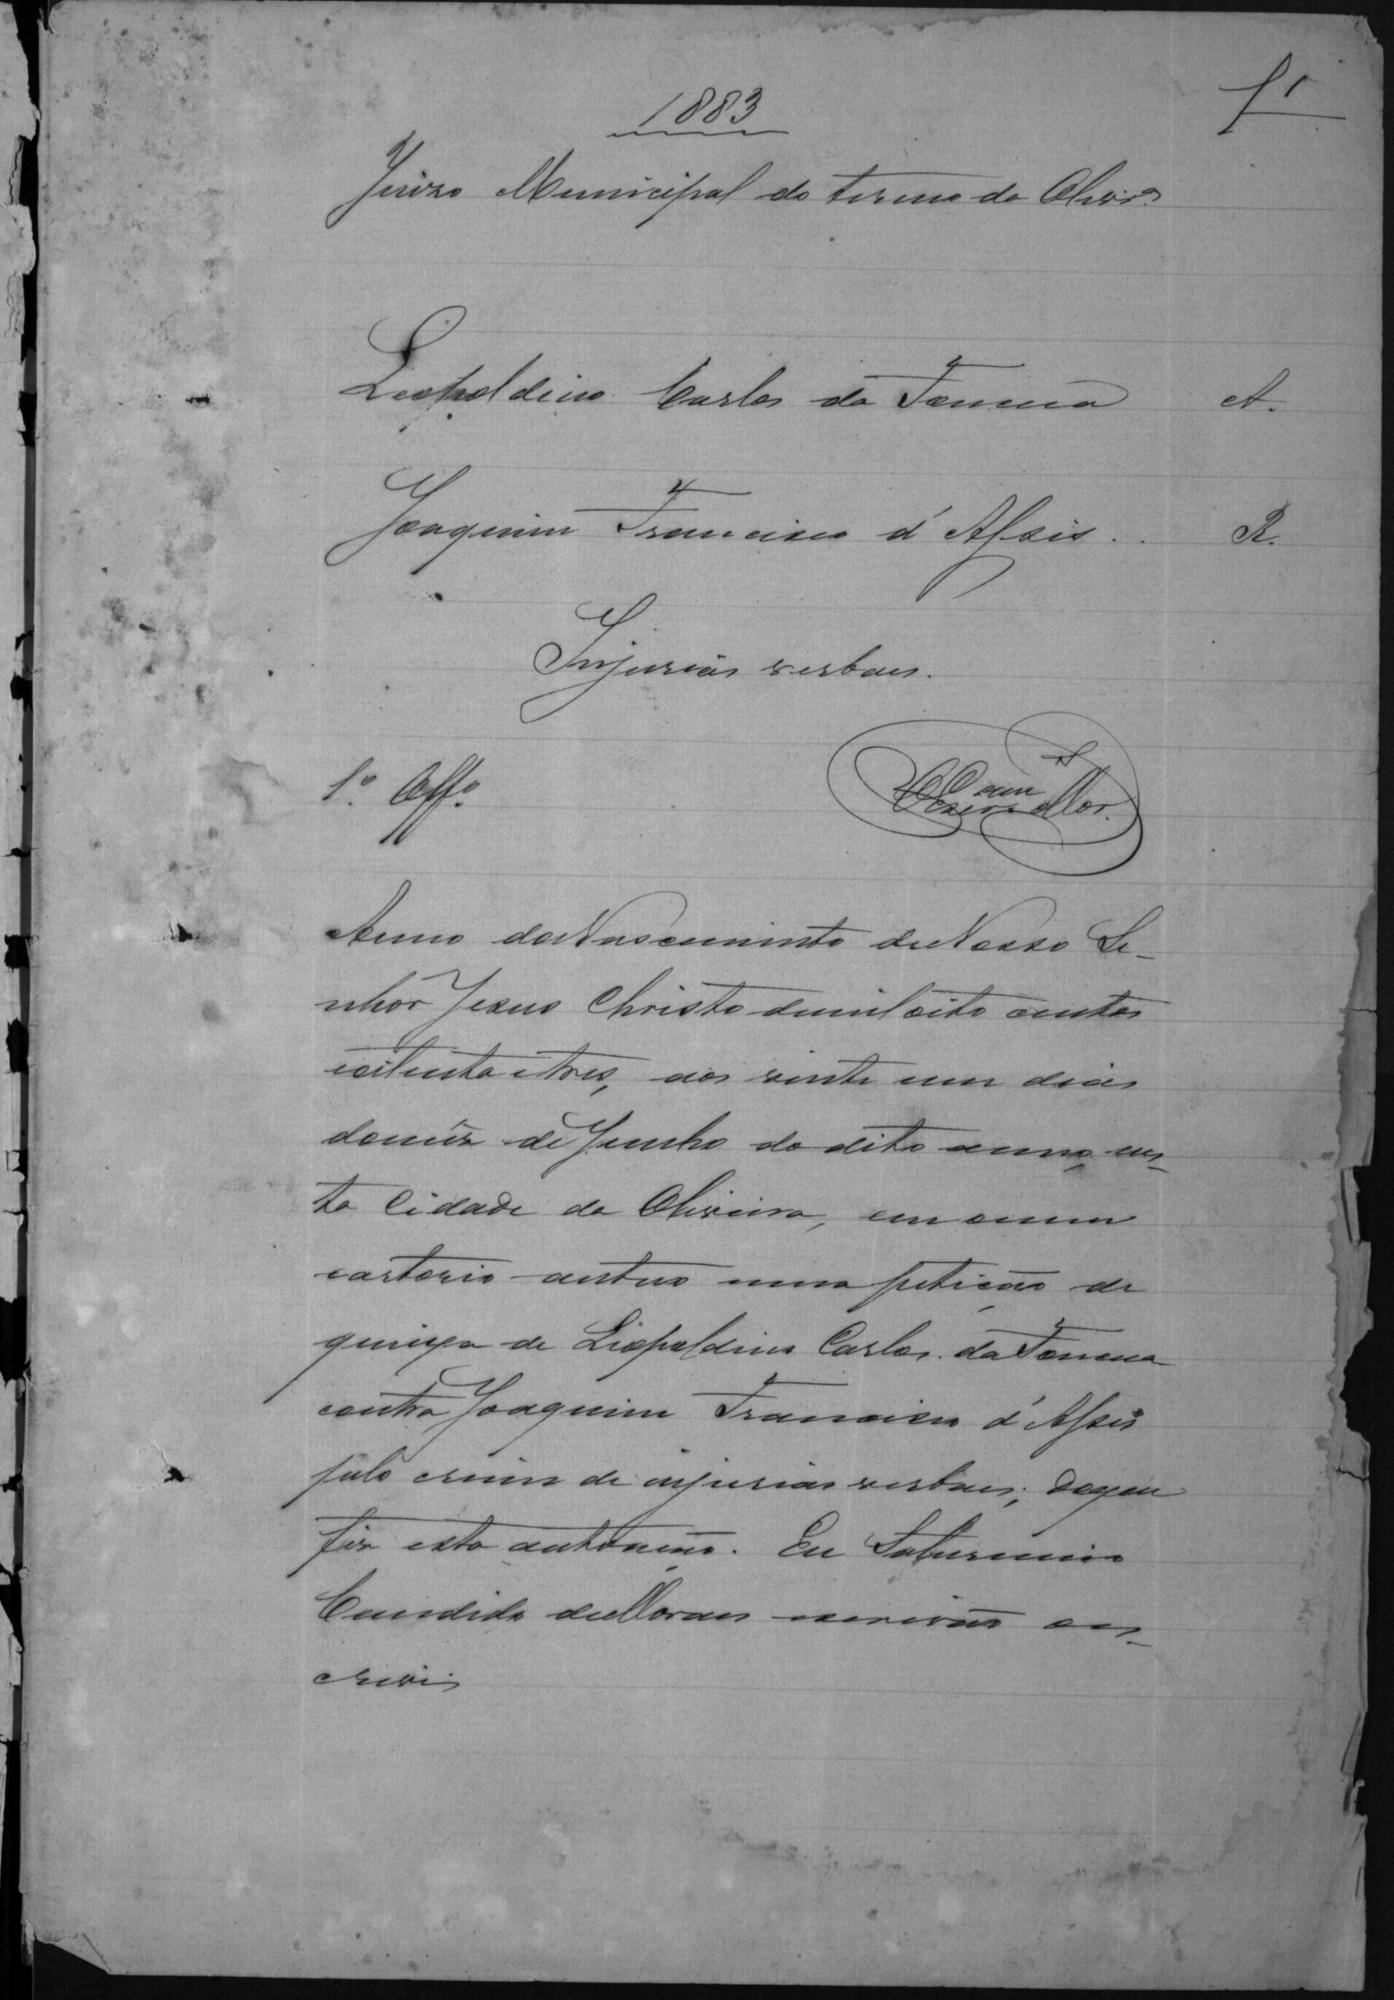 1883
f 1
Juizo Municipal do termo da Olivrª
Leopoldino Carlos da Fonseca A.
Joaquim Francisco d'Assis. R.
Injurias verbaes.
1º Offº
Escrivão Mor.
Anno do Nascimento de Nosso Se-
nhor Jesus Christo de mil oito centos
oitenta e tres, aos vinte um dias
do mez de Junho do dito anno, nes-
ta Cidade da Oliveira, em meu
cartorio autuo uma petição de
queixa de Leopoldino Carlos da Fonseca
contra Joaquim Francisco d'Assis
pelo crime de injurias verbaes; do que
fiz esta autoação. Eu Saturnino
Candido de Moraes escrivão es-
crevi